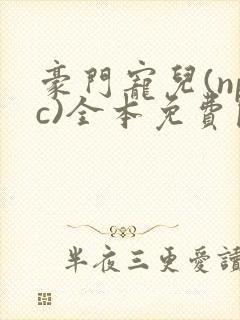 豪門寵兒(np
c)全本免費
半夜三更愛讀